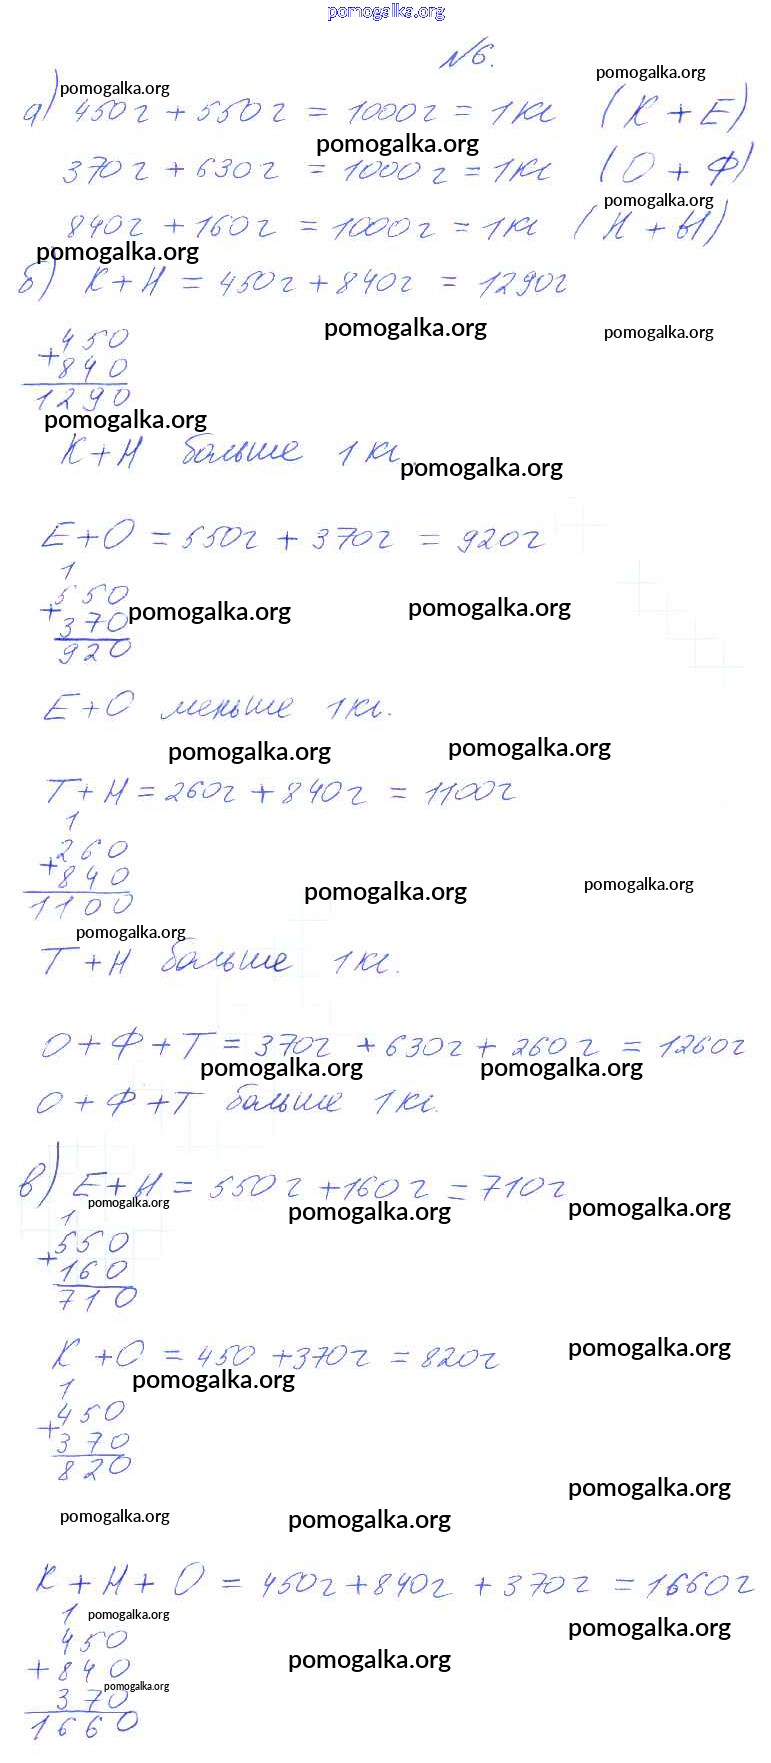 pomogalka.org
№6.
pomogalka.org pomogalka.org
а) 450г + 550г = 1000г = 1кг (К + Е)
pomogalka.org
370г + 630г = 1000г = 1кг (О + Ф)
pomogalka.org
840г + 160г = 1000г = 1кг (Н + Ы)
pomogalka.org
б) К + Н = 450г + 840г = 1290г
pomogalka.org pomogalka.org
450
+ 840
1290
pomogalka.org
К + Н больше 1кг.
pomogalka.org
Е + О = 550г + 370г = 920г
1
550
+ 370
pomogalka.org pomogalka.org
920
Е + О меньше 1кг.
pomogalka.org pomogalka.org
Т + Н = 260г + 840г = 1100г
1
260
+ 840
pomogalka.org pomogalka.org
1100
pomogalka.org
Т + Н больше 1кг.
О + Ф + Т = 370г + 630г + 260г = 1260г
pomogalka.org pomogalka.org
О + Ф + Т больше 1кг.
в) Е + Н = 550г + 160г = 710г
pomogalka.org pomogalka.org pomogalka.org
1
550
+ 160
710
К + О = 450 + 370г = 820г
pomogalka.org
pomogalka.org
1
450
+ 370
820
pomogalka.org
pomogalka.org pomogalka.org
К + Н + О = 450г + 840г + 370г = 1660г
1
pomogalka.org pomogalka.org
450
+ 840
pomogalka.org
pomogalka.org
370
1660